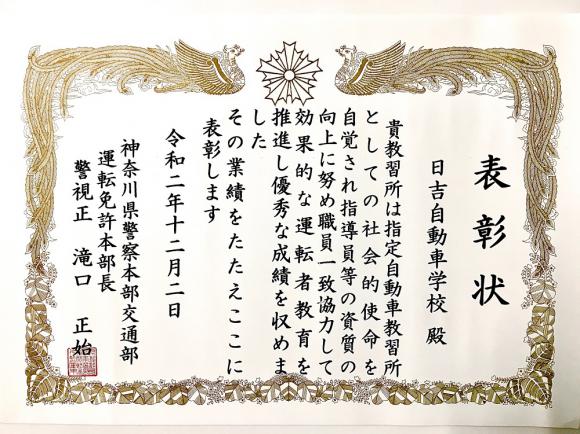 表彰状
日吉自動車学校 殿
貴教習所は指定自動車教習所
としての社会的使命を
自覚され指導員等の資質の
向上に努め職員一致協力して
効果的な運転者教育を
推進し優秀な成績を収めま
した
その業績をたたえここに
表彰します
令和二年十二月二日
神奈川県警察本部交通部
運転免許本部長
警視正 滝口 正始